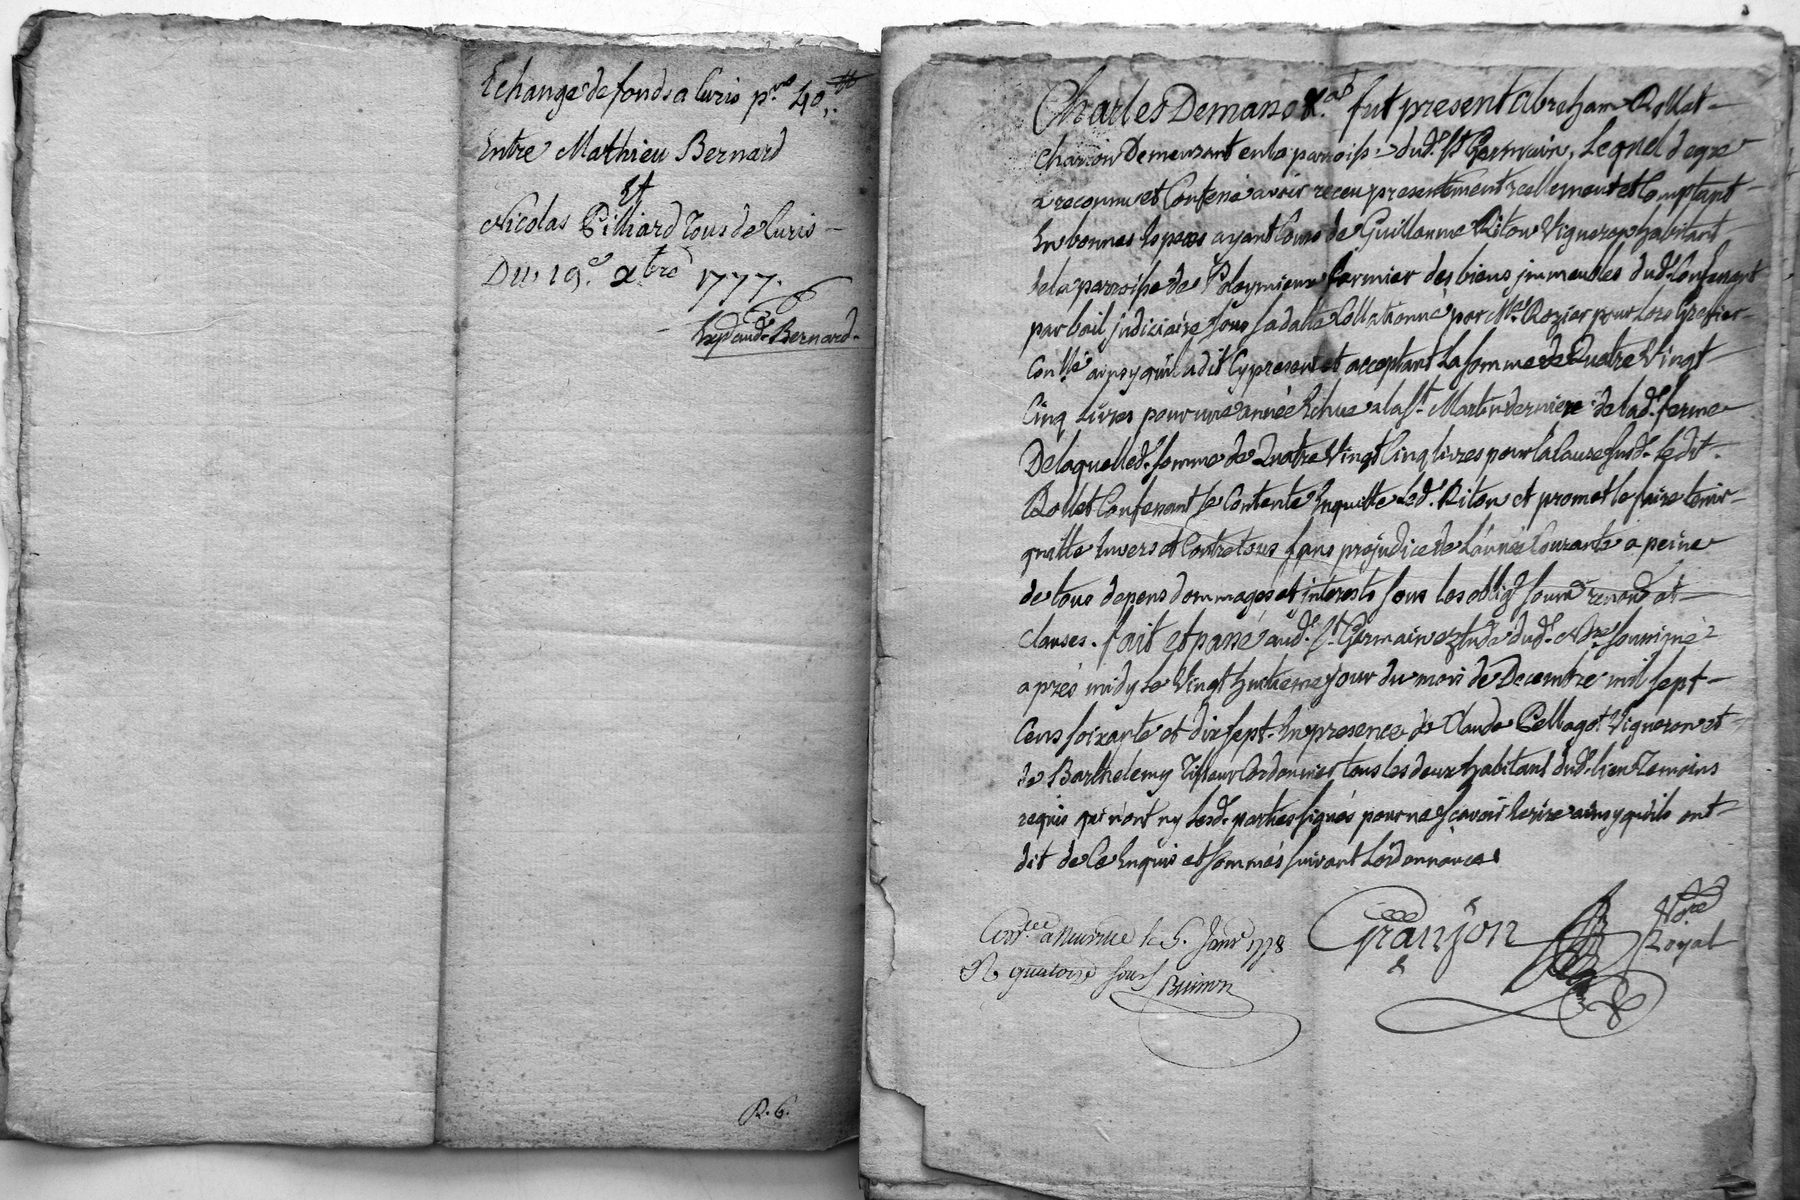 Echange de fonds a Curis pr. 40.tt
Entre Mathieu Bernard
Et
Nicolas Pilliard tous de Curis
Du 19e. xbre 1777.
Exped aud. Bernard.
R. 6.
Charles Demans fut present Abreham Rollet
charon Demeurant en la parroisse dud. St Germain, Lequel de gre
a reconnu et Confessé avoir receu presentement reellement et Comptant
En bonnes Especes ayant Cours de Guillaume Riton Vigneron habitant
de la parroisse de Poleymieux fermier des biens immeubles dud. Confessant
par bail judiciaire sous sa datte Collationné par Me. Rozier pour Lors Greffier
ainsy qu'il a dit Cy present et acceptant La somme de Quatre Vingt
Cinq Livres pour une année Echue a la St. Martin derniere de lad. ferme
De laquelle d. somme de Quatre Vingt Cinq livres pour la Cause susd. Ledit
Rollet Confessant se Contente Enquitte Led. Riton et promet le faire tenir
quitte Envers et Contre tous sans prejudice de L'année Courante a peine
de tous depens dommages et interests sous les oblig. soum. renon. et
Clauses. fait et passé aud. St. Germain Etude dud. Nre. soussigné
après midy Le Vingt huitieme jour du mois de Decembre mil sept
Cens soixante et dix sept. En presence de Claude Pellagot Vigneron et
de Barthelemy Tisseur Cordonnier tous les deux habitant dud. lieu Temoins
requis qui n'ont ny Lesd. parties signés pour ne sçavoir Ecrire ainsy qu'ils ont
dit de Ce Enquis et sommés suivant L'ordonnance.
Con.lée a Neuville le 5. Janv. 1778
R quatorze sous
Brimon
Granjon
Nore
Royal